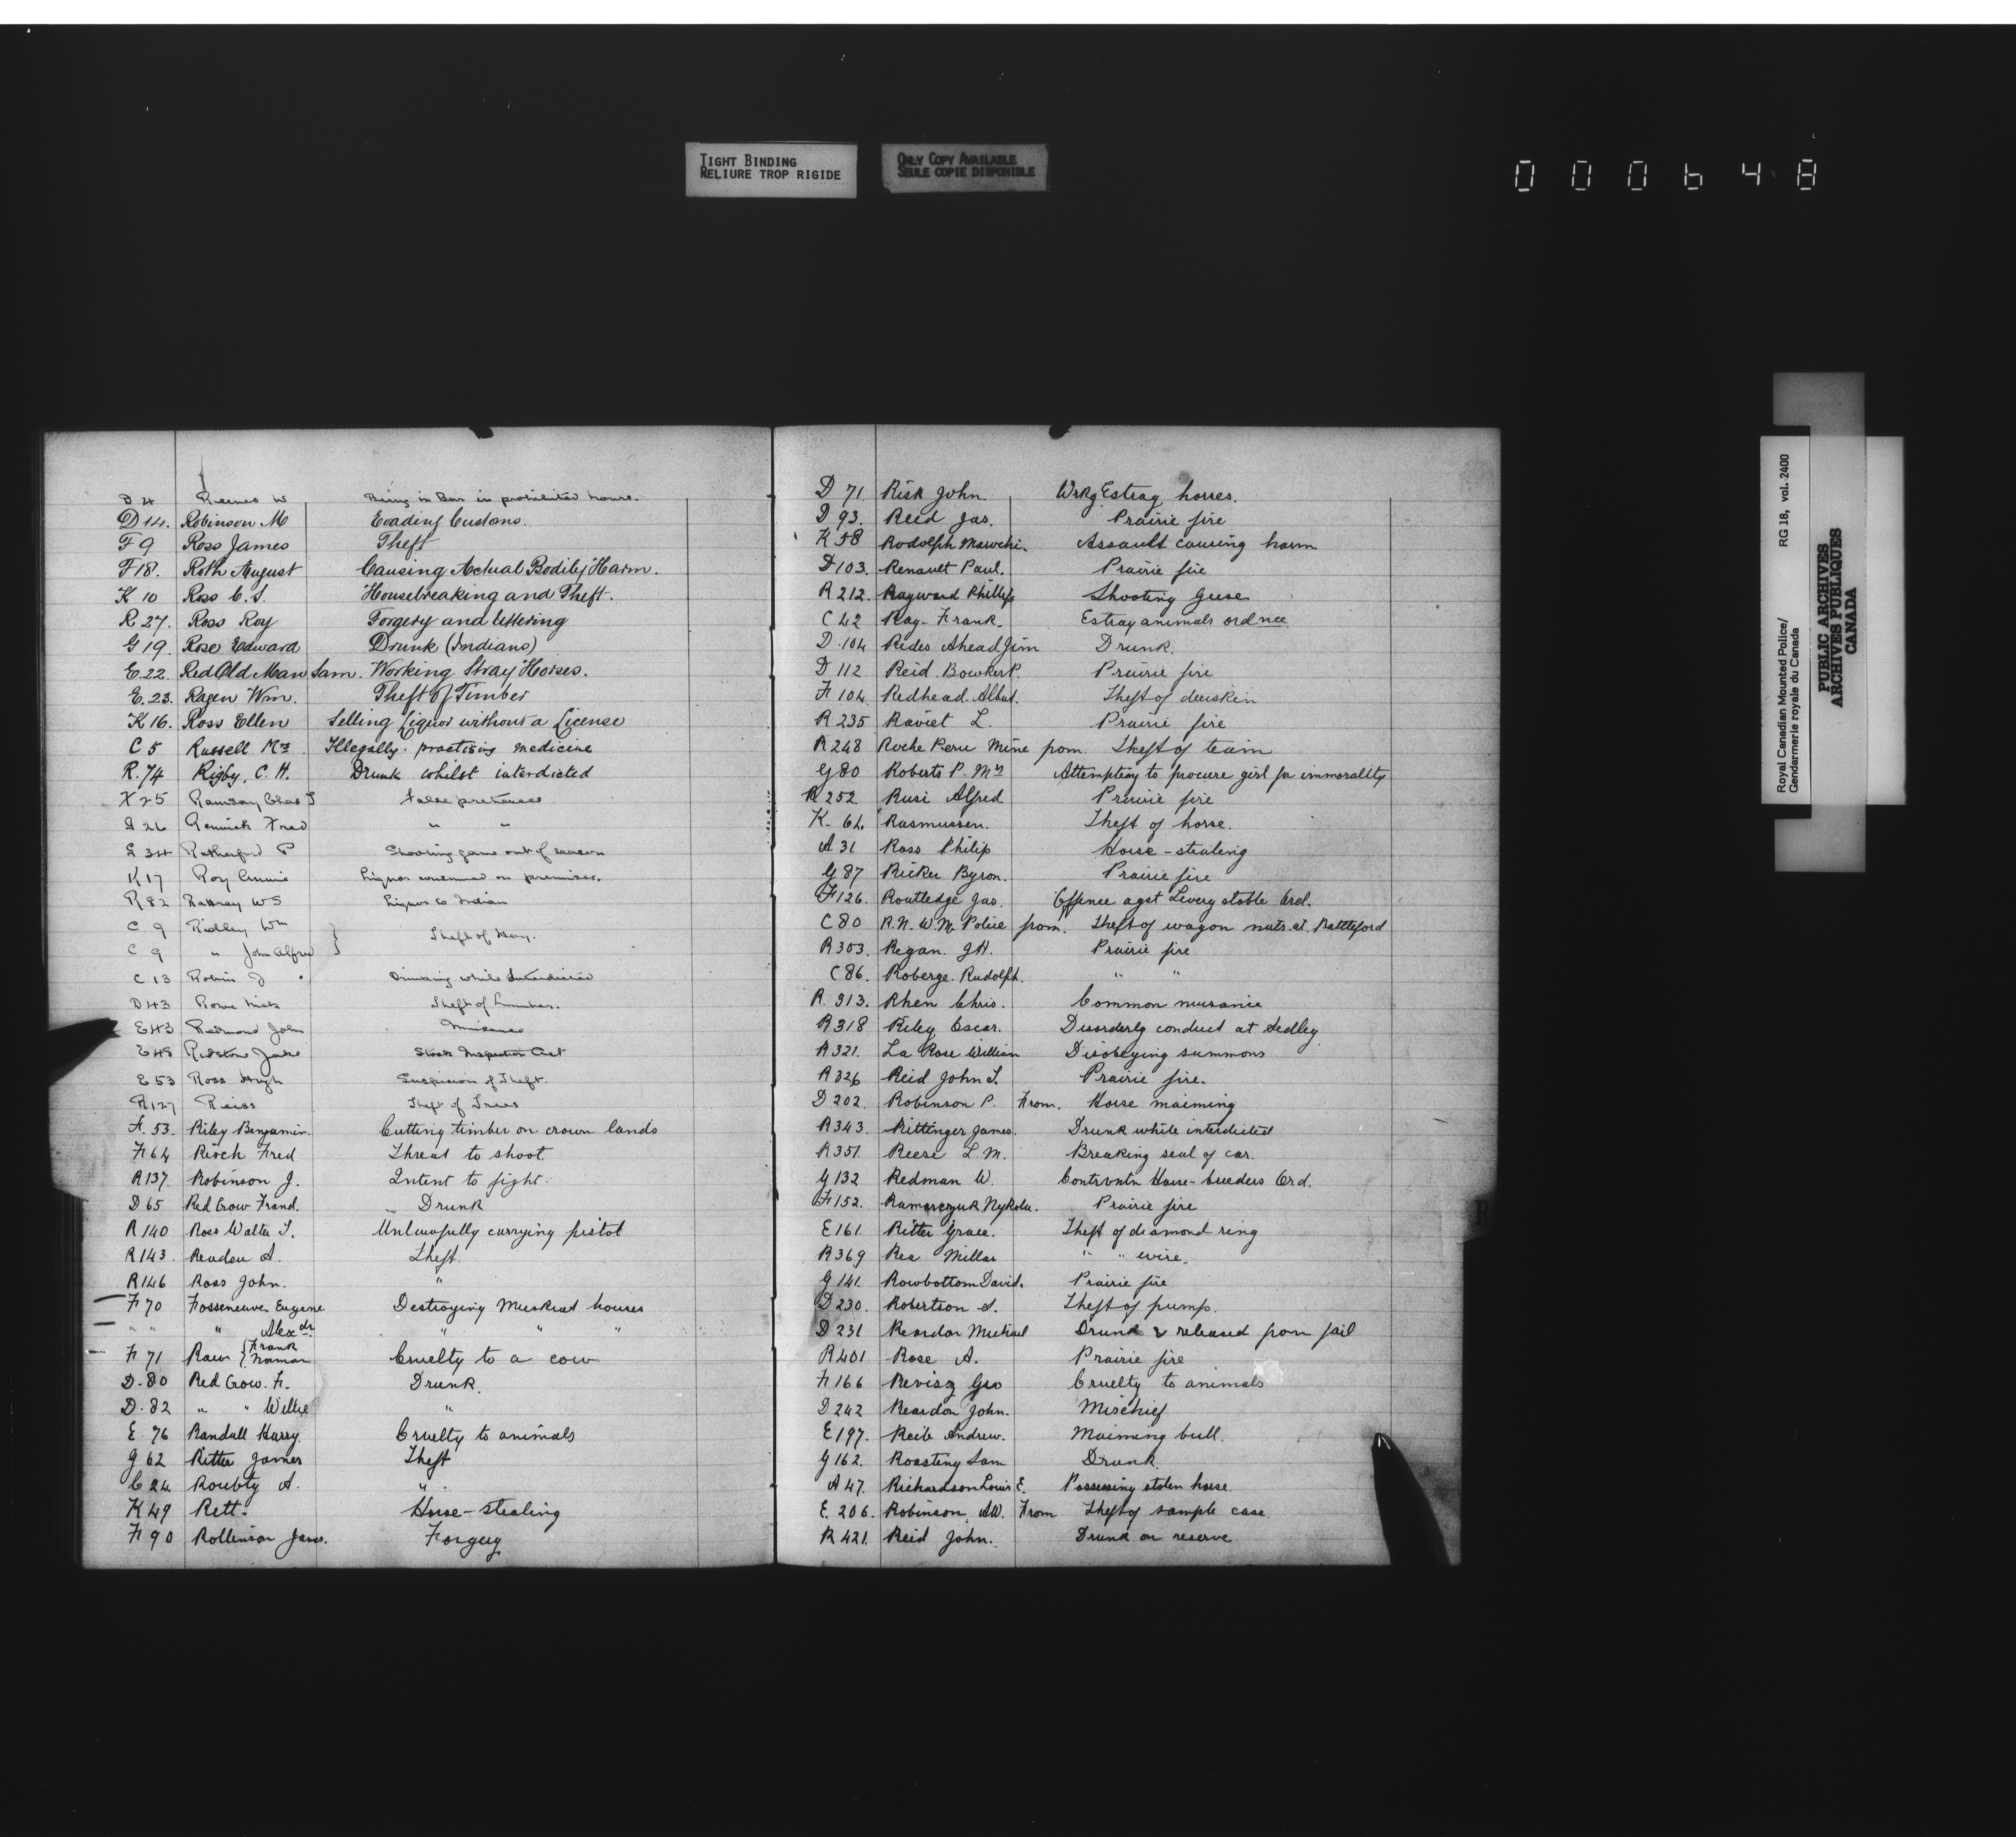 TIGHT BINDING
RELIURE TROP RIGIDE
ONLY COPY AVAILABLE
SEULE COPIE DISPONIBLE
000648
D 4 Reeves W Being in Bar in prohibited hours.
D 14. Robinson M Evading Customs.
F 9 Ross James Theft
F 18. Roth August Causing Actual Bodily Harm.
K 10 Ross C.S. Housebreaking and Theft.
R 27. Ross Roy Forgery and Uttering
G 19. Rose Edward Drunk (Indians)
E. 22. Red Old Man Sam. Working Stray Horses.
E. 23. Ragen Wm. Theft of Timber
K 16. Ross Ellen Selling Liquor without a License
C 5 Russell Mrs Illegally practising medicine
R. 74 Rigby, C. H. Drunk whilst interdicted
F 25 Ramsay Chas False pretences
D 26 Renwick Fred " "
E 34 Rutherford P Shooting game out of season
K 17 Roy Annie Liquor consumed on premises.
R 82 Rattray WS Liquor to Indian
C 9 Ridley Wm
Theft of Hay.
C 9 " John Alfred
C 13 Robin J Drinking while Interdicted
D 43 Rowe Nick Theft of Lumber.
E 43 Redmond John Nuisance
E 48 Redstone Jake Stock Inspection Act
E 53 Ross Hugh Suspicion of Theft.
R 127 Reiss Theft of Trees
A. 53. Riley Benjamin. Cutting timber on crown lands
F 64 Rioch Fred Threat to shoot
R 137. Robinson J. Intent to fight.
D 65 Red Crow Frand. Drunk
R 140 Ross Walter S. Unlawfully carrying pistol
R 143. Readen A. Theft.
R 146 Ross John. "
F 70 Fosseneuve Eugene Destroying Muskrat houses
" " " Alexdr. " " "
F 71 Raw { Frank Norman Cruelty to a cow
D. 80 Red Crow. F. Drunk.
D. 82 " " Willie "
E. 76 Randall Harry. Cruelty to animals
G 62 Ritter James Theft
C 24 Roubty A. "
K 49 Rett. Horse-stealing
F 90 Rollinson James. Forgery
D 71. Risk John. Wrkg Estray horses.
D 93. Reed Jas. Prairie fire
K 58 Rodolph Assault causing harm
D 103. Renault Paul. Prairie fire
R 212. Rayward Phillip Shooting Geese
C 42 Ray Frank. Estray animals ordnce
D. 104 Rides Ahead Jim Drunk.
D 112 Reid. Bowker P. Prairie fire
F 104. Redhead. Albert. Theft of deerskin
R 235 Raviet L. Prairie fire
R 248 Roche Peru Mine from. Theft of team
G 80 Roberts P. Mrs Attempting to procure girl for immorality
R 252 Rusi Alfred Prairie fire
K. 64. Rasmussen. Theft of horse.
A 31 Ross Philip Horse-stealing
G 87 Ricker Byron. Prairie fire
F 126. Routledge Jas. Offence agst Livery stable Ord.
C 80 R. N. W. M. Police from. Theft of wagon nuts. at. Battleford
R 303. Regan. G H. Prairie fire
C 86. Roberge. Rudolph. " "
R. 313. Rhen Chris. Common nuisance
R 318 Riley Oscar. Disorderly conduct at Sedley.
R 321. La Rose William Disobeying summons
R 326 Reid John S. Prairie fire.
D 202. Robinson P. From. Horse maiming
R 343. Rittinger James. Drunk while interdicted
R 351. Reese L. M. Breaking seal of car.
G 132 Redman W. Contrvntn Horse-breeders Ord.
F 152. Ramarczuk Nykola. Prairie fire
E 161. Ritter Grace. Theft of diamond ring
R 369 Rea Millar " " wire.
G 141. Rowbottom David. Prairie fire
D 230. Robertson S. Theft of pump.
D 231 Reardon Michael Drunk & released from jail
R 401 Rose A. Prairie fire
F 166 Revisz Geo Cruelty to animals
D 242 Reardon John. Mischief
E 197. Reib Andrew. Maiming bull.
G 162. Roasteny Sam Drunk.
A 47. Richardson Louis E. Possessing stolen horse.
E. 206. Robinson. AW. From Theft of sample case.
R 421. Reid John. Drunk on reserve
Royal Canadian Mounted Police/ RG 18, vol. 2400
Gendarmerie royale du Canada
PUBLIC ARCHIVES
ARCHIVES PUBLIQUES
CANADA